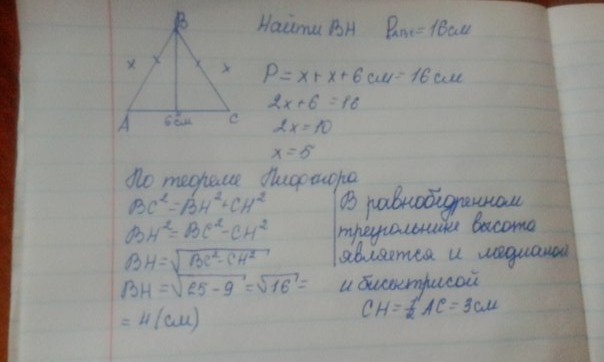 Найти BH P_ABC = 16 см
B
x x
A 6 см C
P = x + x + 6 см = 16 см
2x + 6 = 16
2x = 10
x = 5
По теореме Пифагора
BC² = BH² + CH²
BH² = BC² - CH²
BH = √BC² - CH²
BH = √25 - 9 = √16 =
= 4 (см)
В равнобедренном
треугольнике высота
является и медианой
и бисектрисой
CH = 1/2 AC = 3 см